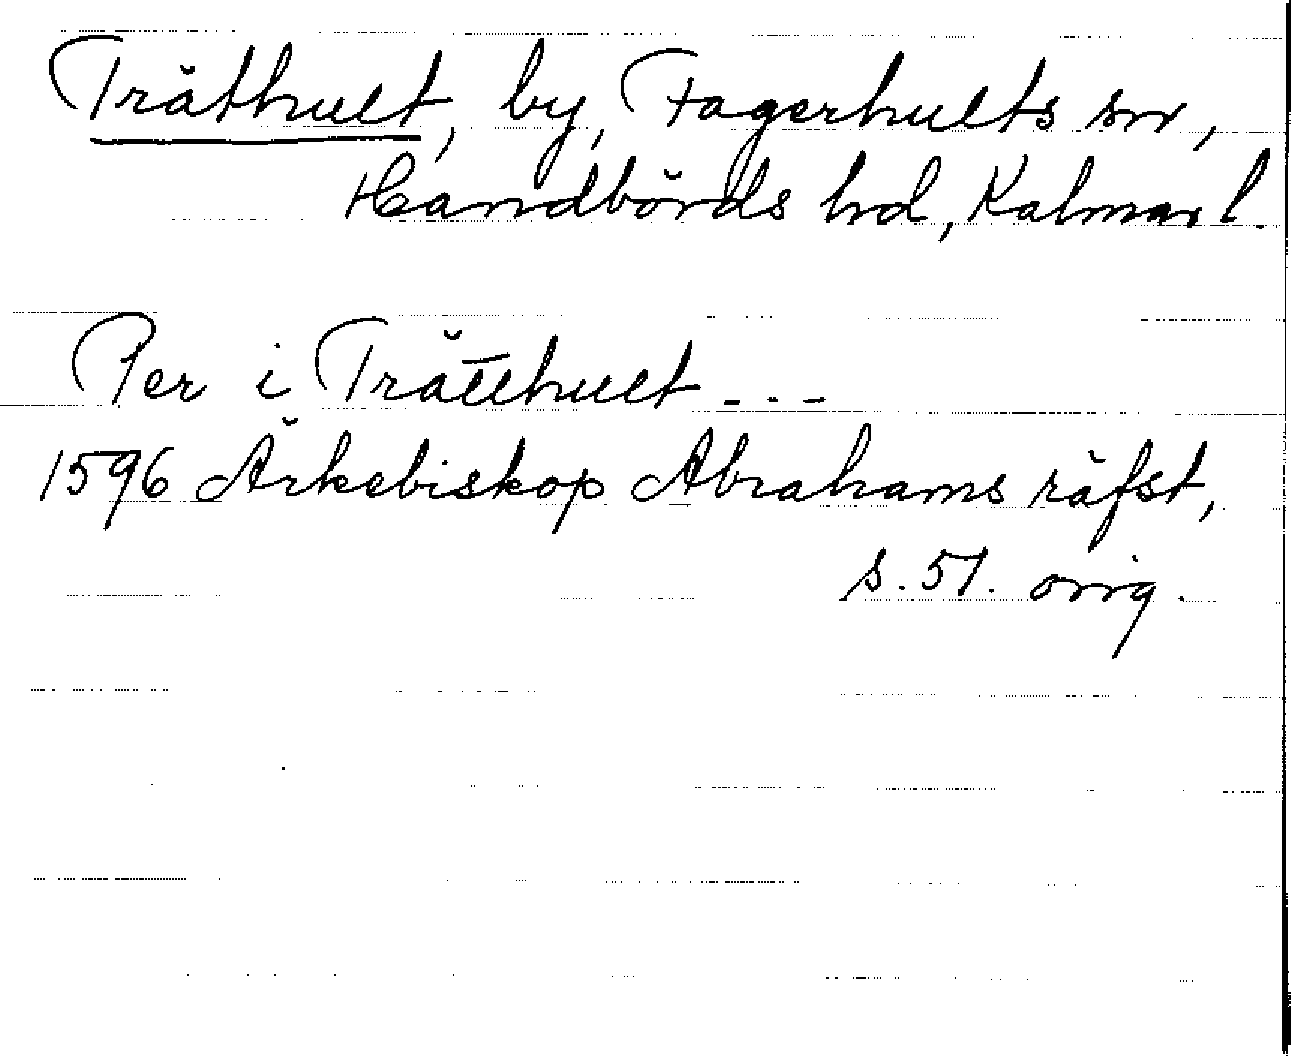 Träthult, by, Fagerhults sn,
Handbörds hd, Kalmar l.
Per i Trätthult - - -
1596 Ärkebiskop Abrahams räfst,
s. 51. orig.